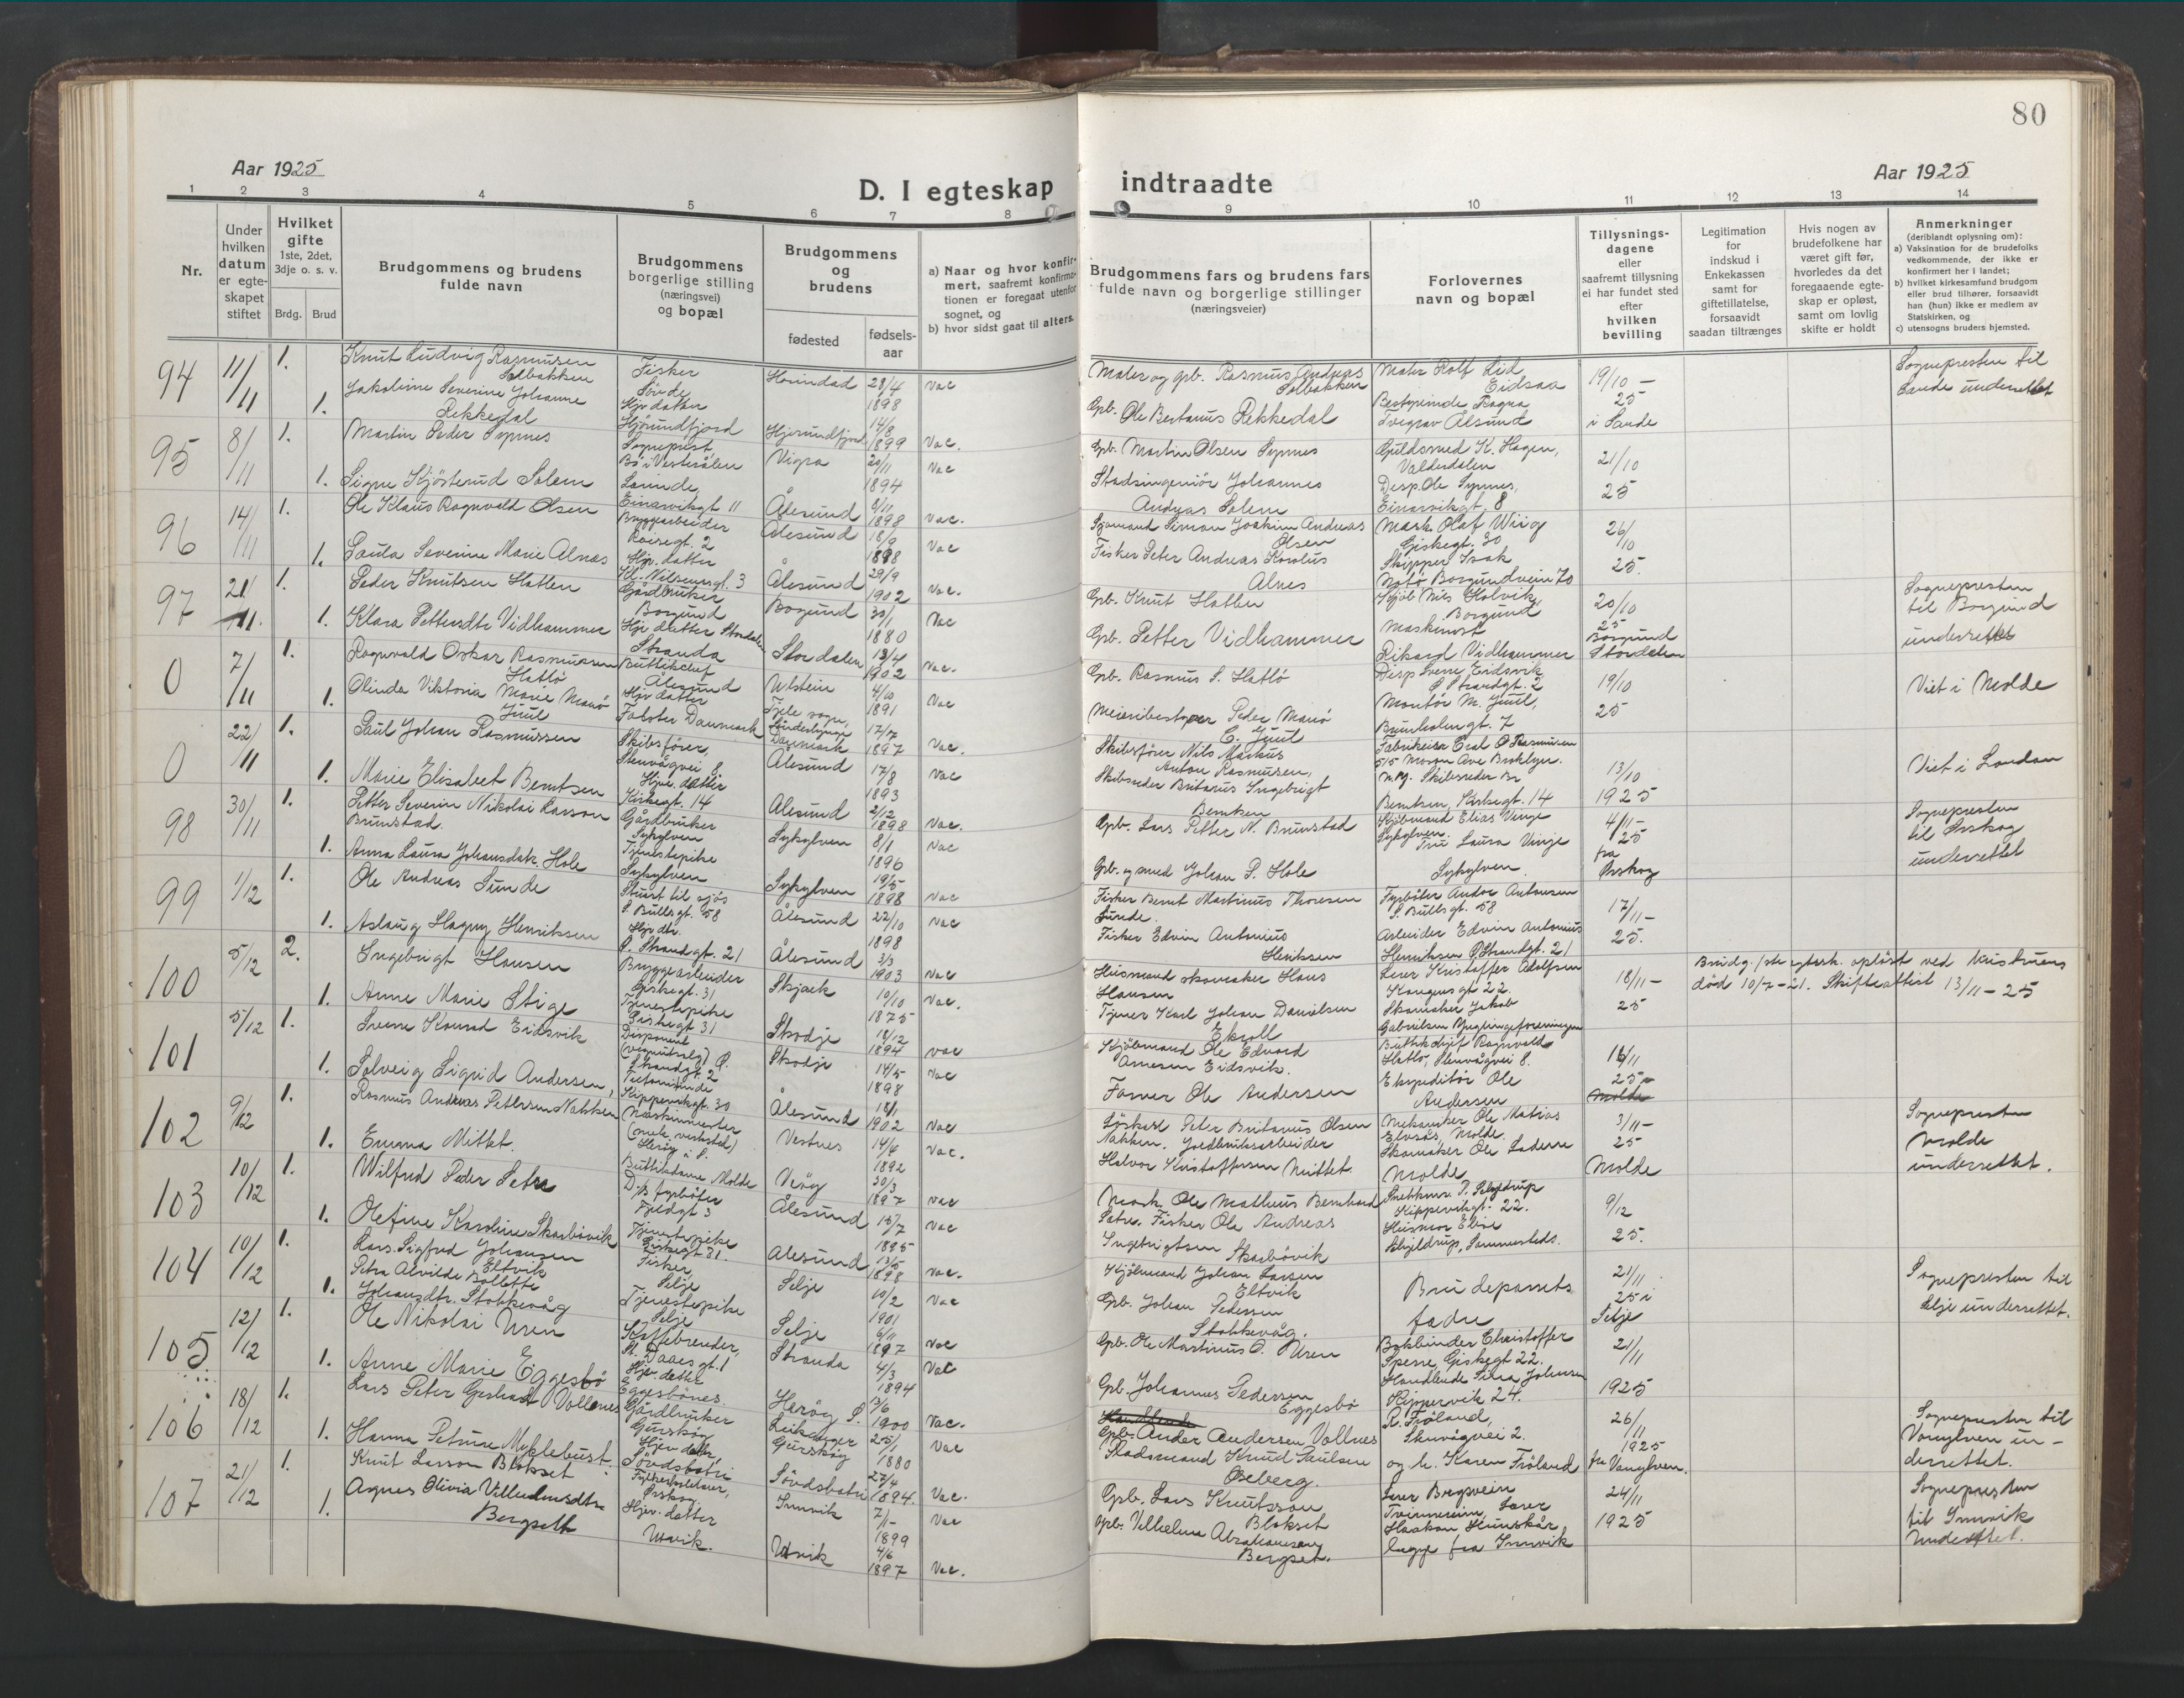 80
Aar 1925
D. I egteskap indtraadte
Aar 1925
1 2 3 4 5 6 7 8 9 10 11 12 13 14
Nr.
Under hvilken datum er egteskapet stiftet
Hvilket gifte
1ste, 2det, 3dje o. s. v.
Brdg. Brud
Brudgommens og brudens fulde navn
Brudgommens borgerlige stilling (næringsvei) og bopæl
Brudgommens og brudens
fødested
fødsels-aar
a) Naar og hvor konfirmert, saafremt konfirmationen er foregaat utenfor sognet, og
b) hvor sidst gaat til alters.
Brudgommens fars og brudens fars fulde navn og borgerlige stillinger (næringsveier)
Forlovernes navn og bopæl
Tillysningsdagene eller saafremt tillysning ei har fundet sted efter hvilken bevilling
Legitimation for indskud i Enkekassen samt for giftetillatelse, forsaavidt saadan tiltrænges
Hvis nogen av brudefolkene har været gift før, hvorledes da det foregaaende egteskap er opløst, samt om lovlig skifte er holdt
Anmerkninger
(deriblandt oplysning om):
a) Vaksination for de brudefolks vedkommende, der ikke er konfirmert her i landet;
b) hvilket kirkesamfund brudgom eller brud tilhører, forsaavidt han (hun) ikke er medlem av Statskirken, og
c) utensogns bruders hjemsted.
94 11/11 1. Knut Ludvig Rasmussen Solbakken Fisker Sørde 28/4 1898 vac
Maler og gpb. Rasmus Andreas Solbakken Maler Rolf Lid Eidsaa 19/10 – 25 i Sande
Sognepresten til Sande underrettet
1. Jakobine Severine Johanne Rekkedal Hjv datter Hjørundfjord Hjørundfjord 14/8 1899 vac.
Gpb. Ole Bertanus Rekkedal Bestyrinde Ragna Tvegrav Ålesund
95 8/11 1. Martin Peder Synnes Sogneprest Bø i Vesterålen Vigra 20/11 1894 vac
Gpb. Martin Olsen Synnes Guldsmed K. Hagen, Valderdalen 21/10 25
1. Signe Kjösterud Solem Einarvikgt 11 Ålesund 6/11 1898 vac.
Stadsingeniör Johannes Andreas Solem Disp. Ole Synnes, Einarvikgt. 8
96 14/11 1. Ole Klaus Ragnvald Olsen Bryggearbeider Röisegt. 2 Ålesund 18/9 1898 vac
Sjömand Simon Joakim Andreas Olsen Mask. Olaf Wiig Giskegt. 30 26/10 25.
1. Paula Severine Marie Alnæs Hjv. datter Kl. Nilsensgt. 3 Ålesund 29/9 1902 vac.
Fisker Peter Andreas Karolus Alnes Skipper Isak Notö Borgundvein 70
97 21/11. 1. Peder Knutsen Hatlen Gårdbruker Borgund Borgund 30/1 1880 vac
Gpb. Knut Hatlen Kjöb Nils Holvik, Borgund 20/10 25 Borgund Stordalen
Sognepresten til Borgund underrettet
1. Klara Pettersdtr Vidhammer Hjv datter Stordalen Stranda Stordalen 13/4 1902 vac.
Gpb. Petter Vidhammer Maskinist Rikard Vidhammer
0 7/11 1. Ragnvald Oskar Rasmussen Hatlö Butikchef Ålesund Ulstein 4/10 1891 vac
Gpb. Rasmus S. Hatlö Disp Sverre Eidsvik Ø Strandgt. 2 19/10 25
Viet i Molde
1. Olinda Viktoria Marie Manö Juul Hjv datter Falster Danmark 17/7 1897 vac.
Meieribestyrer Peder Manö C. Juul Montör M. Juul, Brunholmgt. 7
0 22/11 1. Paul Johan Rasmussen Skibsförer, Stenvågvei 8 Ålesund 17/8 1893 vac
Skibsförer Nils Markus Anton Rasmussen, 13/10 1925
Viet i London
1. Marie Elisabet Berntsen Hjv. datter Kirkegt. 14 Ålesund 2/12 1898 vac.
Skibsreder Britanus Ingebrigt Berntsen Skibsreder Br Berntsen, Kirkegt. 14
98 30/11 1. Petter Severin Nikolai Larsson Brunstad. Gårdbruker Sykylven Sykylven 8/1 1896 vac
Gpb. Lars Petter N. Brunstad Kjöbmand Elias Vinje Sykylven. 4/11 – 25 fra Ørskog
Sognepresten til Ørskog underrettet
1. Anna Laura Johansdatr. Hole Tjenestepike Sykylven Sykylven 19/5 1898 vac
Gpb. og smed Johan P. Hole Fru Laura Vinje Sykylven
99 1/12 1. Ole Andreas Sunde Stuart til sjös S. Bullsgt. 58 Ålesund 22/10 1898 vac
Fisker Bernt Martinus Thoresen Sunde. Fyrböter Andor Antonsen S. Bullsgt. 58 17/11 – 25.
1. Aslaug Hagny Henriksen Hjv dtr. Ø. Strandgt. 21 Ålesund 3/3 1903 vac
Fisker Edvin Antonius Henriksen Arbeider Edvin Antonius Henriksen Ø Strandgt. 21
100 5/12 2. Ingebrigt Hansen Bryggearbeider Giskegt. 31 Skjaak 10/10 1875 vac.
Husmand skomaker Hans Hansen Lærer Kristoffer Adolfsen Kongensgt 22. 18/11 – 25
Brudg. 1ste egtesk. oplöst ved Kristruens död 10/7–21. Skifteattest 13/11–25
1. Anne Marie Stige Tjenestepike Giskegt 31 Skodje 18/12 1894 vac
Tjener Karl Johan Danielsen Ekroll Skomaker Jakob Gabrielsen Ynglingeforeningen
101 5/12 1. Sverre Konrad Eidsvik Disponent Ø. Strandgt. 2 Skodje 14/5 1898 vac
Kjöbmand Ole Edvard Arnesen Eidsvik. Butikchef Ragnvald Hatlö, Stenvågvei 8. 16/11 25
1. Solveig Sigrid Andersen, Skippervikgt. 30 Ålesund 18/1 1902 vac
Former Ole Andersen Ekspeditör Ole Andersen
102 9/12 1. Rasmus Andreas Petersen Nakken Maskinmester (mek. verksted) Vestnes 14/4 1892 vac.
Löskarl Peter Britanus Olsen Nakken. Jordbruksarbeider Mekaniker Ole Matias Elvsås, Molde. 3/11 – 25 Molde
Sognepresten Molde underrettet.
1. Emma Mittet. Butikdame Molde Veöy 30/3 1897 vac
Halvor Kristoffersen Mittet. Skomaker Ole Laderne Molde
103 10/12 1. Wilfred Peder Sætre D/s fyrböter Fjeldgt 3 Ålesund 15/7 1895 vac
Mask. Ole Matheus Bernhard Sætre. Snekkerm. P. Schjeldrup Skippervikgt. 22. 9/12 25.
1. Olefine Karoline Skarbövik Tjenestepike Giskegt 31. Ålesund 13/5 1898 vac.
Fisker Ole Andreas Ingebrigtsen Skarbövik Husmor Elise Schjeldrup, Sammesteds.
104 10/12 1. Lars Sigfred Johansen Eltvik Fisker Selje Selje 10/2 1901 vac
Kjöbmand Johan Larsen Eltvik Brudeparrets fædre 21/11 25 i Selje
Sognepresten til Selje underrettet.
1. Petra Alvilde Bolette Johansdtr. Stokkevåg Tjenestepike Selje Selje 6/11 1897 vac
Gpb. Johan Pedersen Stokkevåg.
105 12/12 1. Ole Nikolai Uren Kaffebrenner, St. Daaesgt. 1 Stranda 4/3 1894 vac
Gpb. Ole Martinus O. Uren Bokbinder Christoffer Sperre, Giskegt 22. 21/11 1925
1. Anne Marie Eggesbö Hjv. datter Eggesbönes Heröy S. 13/6 1900 vac.
Gpb. Johannes Pedersen Eggesbö Handlende Petra Johnsen Skippervik 24.
106 18/12 1. Lars Peter Gerhard Vollnes Gårdbruker Gurskøy Gurskøy 25/1 1880 vac
Gpb. Ander Andersen Vollnes R. Fröland, Stenvågvei 2. 26/11 1925 fra Vanylven.
Sognepresten til Vanylven underrettet.
1. Hanna Petrine Myklebust. Hjv datter, Sövdsbotn Sövdsbotn 27/4 1894. vac.
Stadsmand Knud Paulsen Øseberg. og h. Karen Fröland
107 21/12 1. Knut Larsson Blokset Ørskog Innvik 7/1- 1899 vac
Gpb. Lars Knutsson Blokset Lærer Bergsvein Tvinnereim 24/11 1925
Sognepresten til Innvik underrettet.
1. Agnes Olivia Villumsdtr. Bergsett Hjv. datter Utvik. Utvik 4/6 1897 vac.
Gpb. Vilhelm Abrahamson Bergset. Lærer Haakon Hunskår, begge fra Innvik